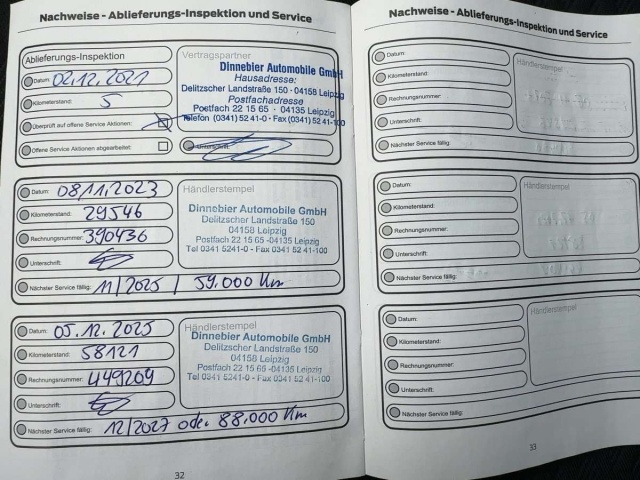 Nachweise - Ablieferungs-Inspektion und Service
Ablieferungs-Inspektion
Datum: 02.12.2021
Kilometerstand: 5
Überprüft auf offene Service Aktionen:
Offene Service Aktionen abgearbeitet:
Vertragspartner
Dinnebier Automobile GmbH
Hausadresse:
Delitzscher Landstraße 150 · 04158 Leipzig
Postfachadresse
Postfach 22 15 65 · 04135 Leipzig
Telefon (0341) 52 41-0 · Fax (0341) 52 41-100
Unterschrift:
Datum: 08.11.2023
Kilometerstand: 29546
Rechnungsnummer: 390436
Unterschrift:
Nächster Service fällig: 11/2025 / 59.000 Km
Händlerstempel
Dinnebier Automobile GmbH
Delitzscher Landstraße 150
04158 Leipzig
Postfach 22 15 65 -04135 Leipzig
Tel 0341 5241-0 - Fax 0341 52 41-100
Datum: 05.12.2025
Kilometerstand: 58121
Rechnungsnummer: 449209
Unterschrift:
Nächster Service fällig: 12/2027 oder 88.000 Km
Händlerstempel
Dinnebier Automobile GmbH
Delitzscher Landstraße 150
04158 Leipzig
Postfach 22 15 65 -04135 Leipzig
Tel 0341 5241-0 - Fax 0341 52 41-100
32
Nachweise - Ablieferungs-Inspektion und Service
Datum:
Kilometerstand:
Rechnungsnummer:
Unterschrift:
Nächster Service fällig:
Händlerstempel
Datum:
Kilometerstand:
Rechnungsnummer:
Unterschrift:
Nächster Service fällig:
Händlerstempel
Datum:
Kilometerstand:
Rechnungsnummer:
Unterschrift:
Nächster Service fällig:
Händlerstempel
33